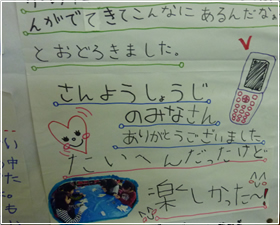 んがでてきてこんなにあるんだな、
とおどろきました。
さんようしょうじ
のみなさん
ありがとうございました
たいへんだったけど
楽しかった〜!